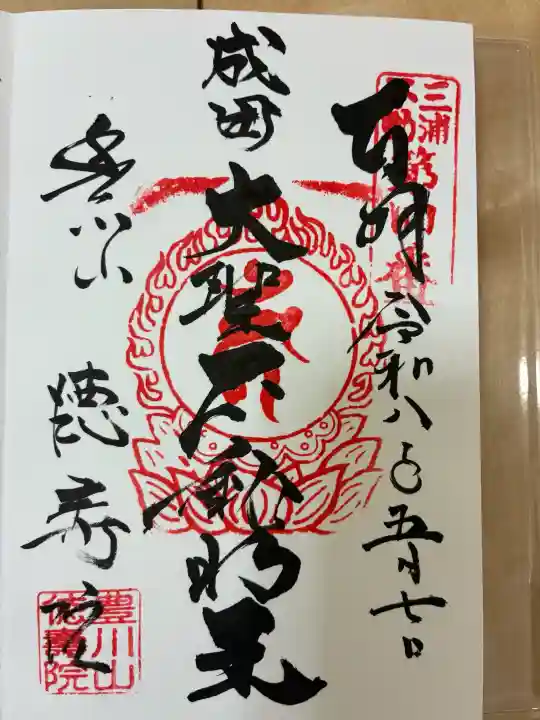 三浦
不動第
奉拝
令和八年五月七日
成田
大聖不動明王
豊川山
徳寿院
豊川山
徳寿院